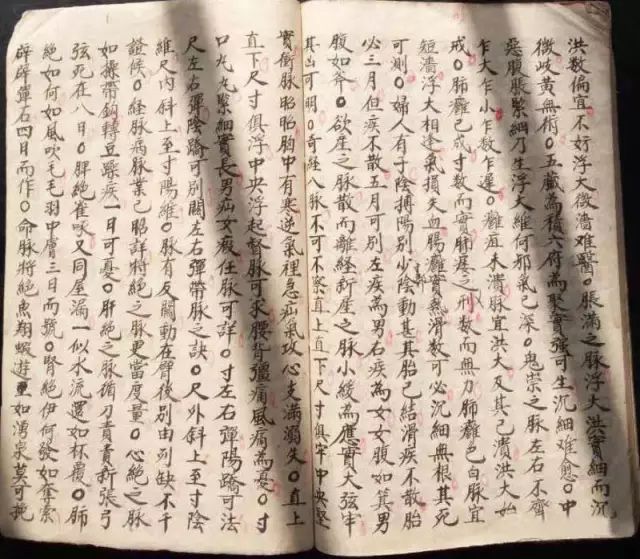 洪数偏宜不好浮大微濇难醫○脹滿之脉浮大洪實細而沉
微岐黄無術○五藏為積六府為聚實强可生沉細难愈○中
惡腹脹緊細乃生浮大維何邪氣已深○鬼祟之脉左右不齊
乍大乍小乍数乍遲○癰疽未潰脉宜洪大及其已潰洪大始
戒○肺癰已成寸数而實肺痿之形数而無力肺癰色白脉宜
短濇浮大相逢氣損失血腸癰實熱滑数可必沉細無根其死
可測○婦人有子陰搏陽别少陰動甚其胎已結滑疾不散胎
必三月但疾不散五月可别左疾為男右疾為女女腹如箕男
腹如釜○欲產之脉散而離經新產之脉小緩為應實大弦牢
其凶可明○奇經八脉不可不察直上直下尺寸俱牢中央堅
實衝脉昭昭胸中有寒逆氣裡急疝氣攻心支滿溺失○直上
直下尺寸俱浮中央浮起督脉可求腰背彊痛風痛為憂○寸
口丸丸緊細實長男疝女瘕任脉可詳○寸左右彈陽蹻可法
尺左右彈陰蹻可别關左右彈帶脉之訣○尺外斜上至寸陰
維尺内斜上至寸陽維○脉有反關動在臂後别由列缺不干
證候○經脉病脉業已昭詳將絶之脉更當度量○心絶之脉
如操帶鈎轉豆躁疾一日可憂○肝絶之脉循刀責責新張弓
弦死在八日○脾絶雀啄又同屋漏一似水流還如杯覆○肺
絶如何如風吹毛毛羽中膚三日而號○腎絶伊何發如奪索
辟辟彈石四日而作○命脉將絶魚翔蝦遊至如湧泉莫可挽